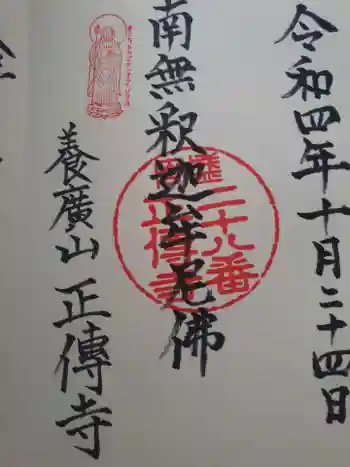 令和四年十月二十四日
南無釈迦牟尼佛
二十八番
正傳寺
養廣山正傳寺